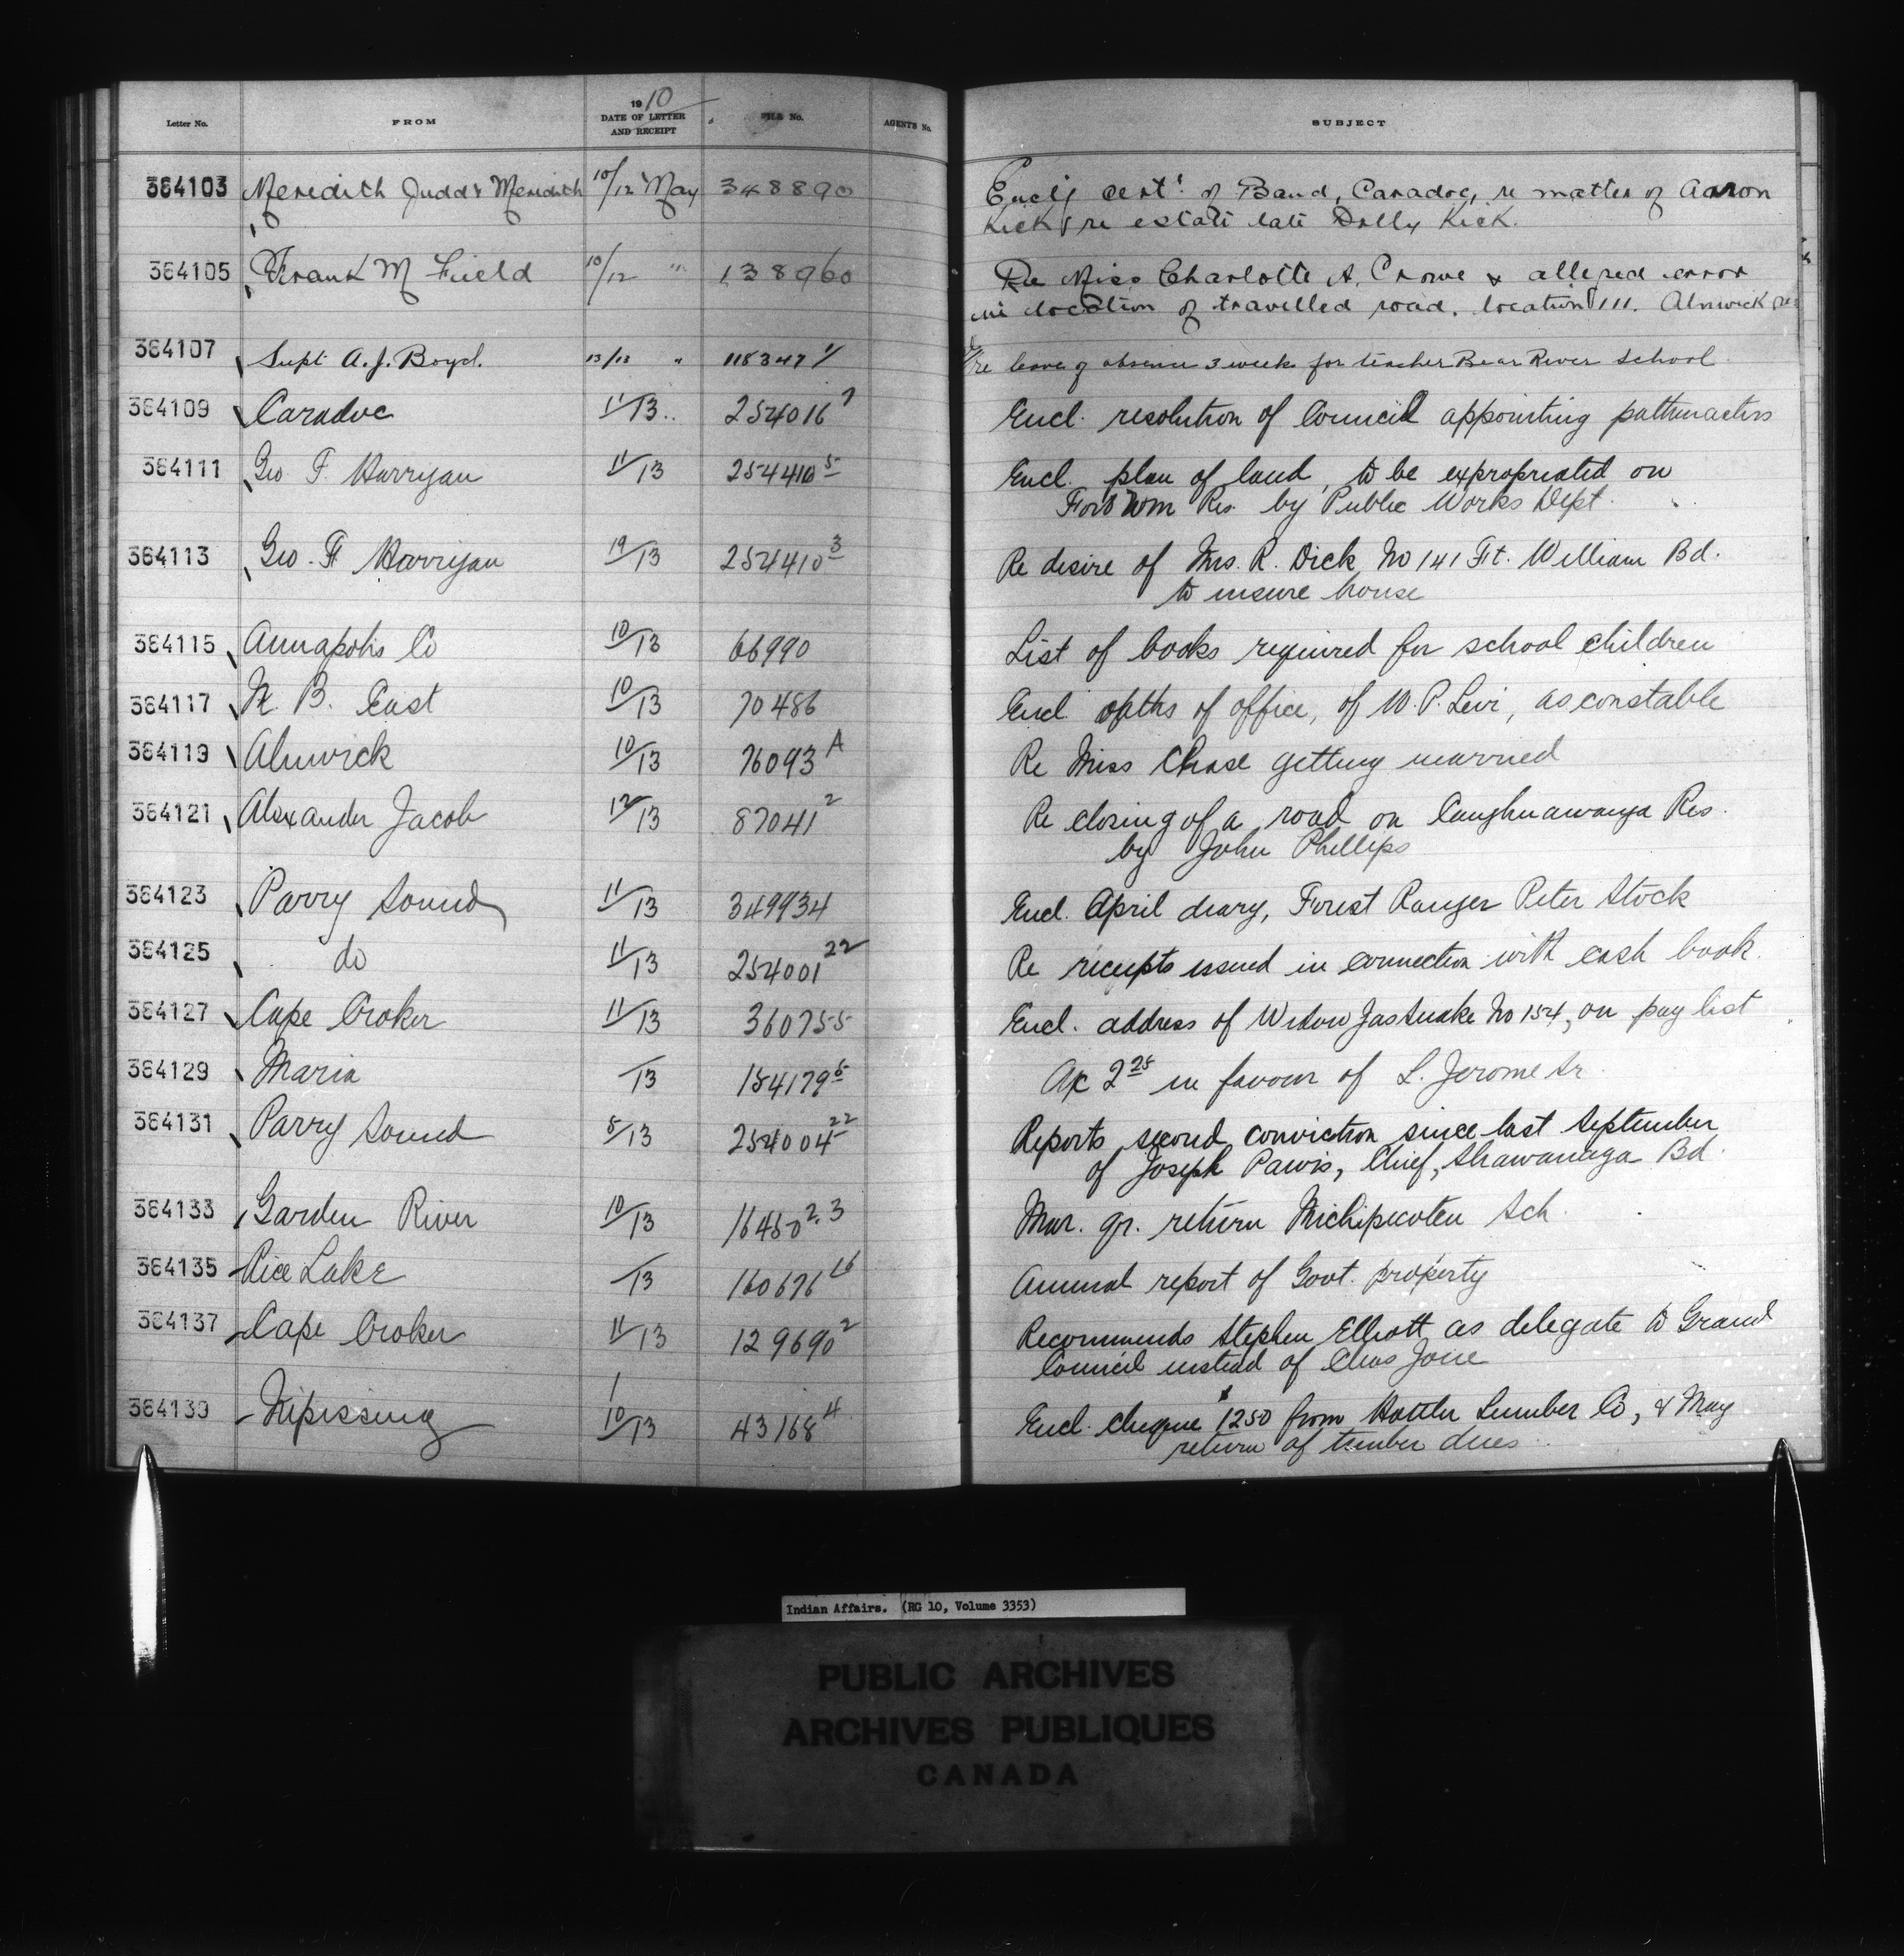 1910
Letter No. FROM DATE OF LETTER AND RECEIPT FILE No. AGENTS No. SUBJECT
364103 Meredith Judd & Meredith 10/12 May 348890 Encl'g cert. of Band, Caradoc, re matter of Aaron
Kick & re estate late Dolly Kick.
364105 Frank M Field 10/12 " 138960 Re Miss Charlotte A. Crowe & alleged error
in location of travelled road, location 111. Alnwick Res
364107 Supt A. J. Boyd. 13/13 " 118347 1/ re leave of absence 3 weeks for teacher Bear River School
364109 Caradoc 11/13 .. 254016 7 Encl. resolution of Council appointing pathmasters
364111 Geo F. Harrigan 11/13 254410 5 Encl. plan of land, to be expropriated on
Fort Wm Res. by Public Works Dept.
364113 Geo. F Harrigan 19/13 254410 3 Re desire of Mrs. R. Dick No 141 Ft. William Bd.
to insure house
364115 Annapolis Co 10/13 66990 List of books required for school children
364117 N. B. East 10/13 70486 Encl. oaths of office, of W. P. Levi, as constable
364119 Alnwick 10/13 76093 A Re Miss Chase getting married
364121 Alexander Jacob 12/13 87041 2 Re closing of a road on Caughnawauga Res.
by John Phillips
364123 Parry Sound 11/13 349934 Encl. April diary, Forest Ranger Peter Stock
364125 do 11/13 254001 22 Re receipts issued in connection with cash book.
364127 Cape Croker 11/13 360755 Encl. address of Widow Jas No 154, on pay list
364129 Maria /13 154179 5 A/c 2 25 in favour of L. Jerome Sr.
364131 Parry Sound 8/13 254004 22 Reports second conviction since last September
of Joseph Pawis, Chief, Shawanaga Bd.
364133 Garden River 10/13 16450 2.3 Mar. qr. return Michipicoten Sch.
364135 Rice Lake /13 160676 16 Annual report of Govt. property
364137 Cape Croker 11/13 129690 2 Recommends Stephen Elliott as delegate to Grand
Council instead of Chas Jone
364139 Nipissing 10/13 43168 4 Encl. cheque $1250 from Lumber Co, & May
return of timber dues
Indian Affairs. (RG 10, Volume 3353)
PUBLIC ARCHIVES
ARCHIVES PUBLIQUES
CANADA